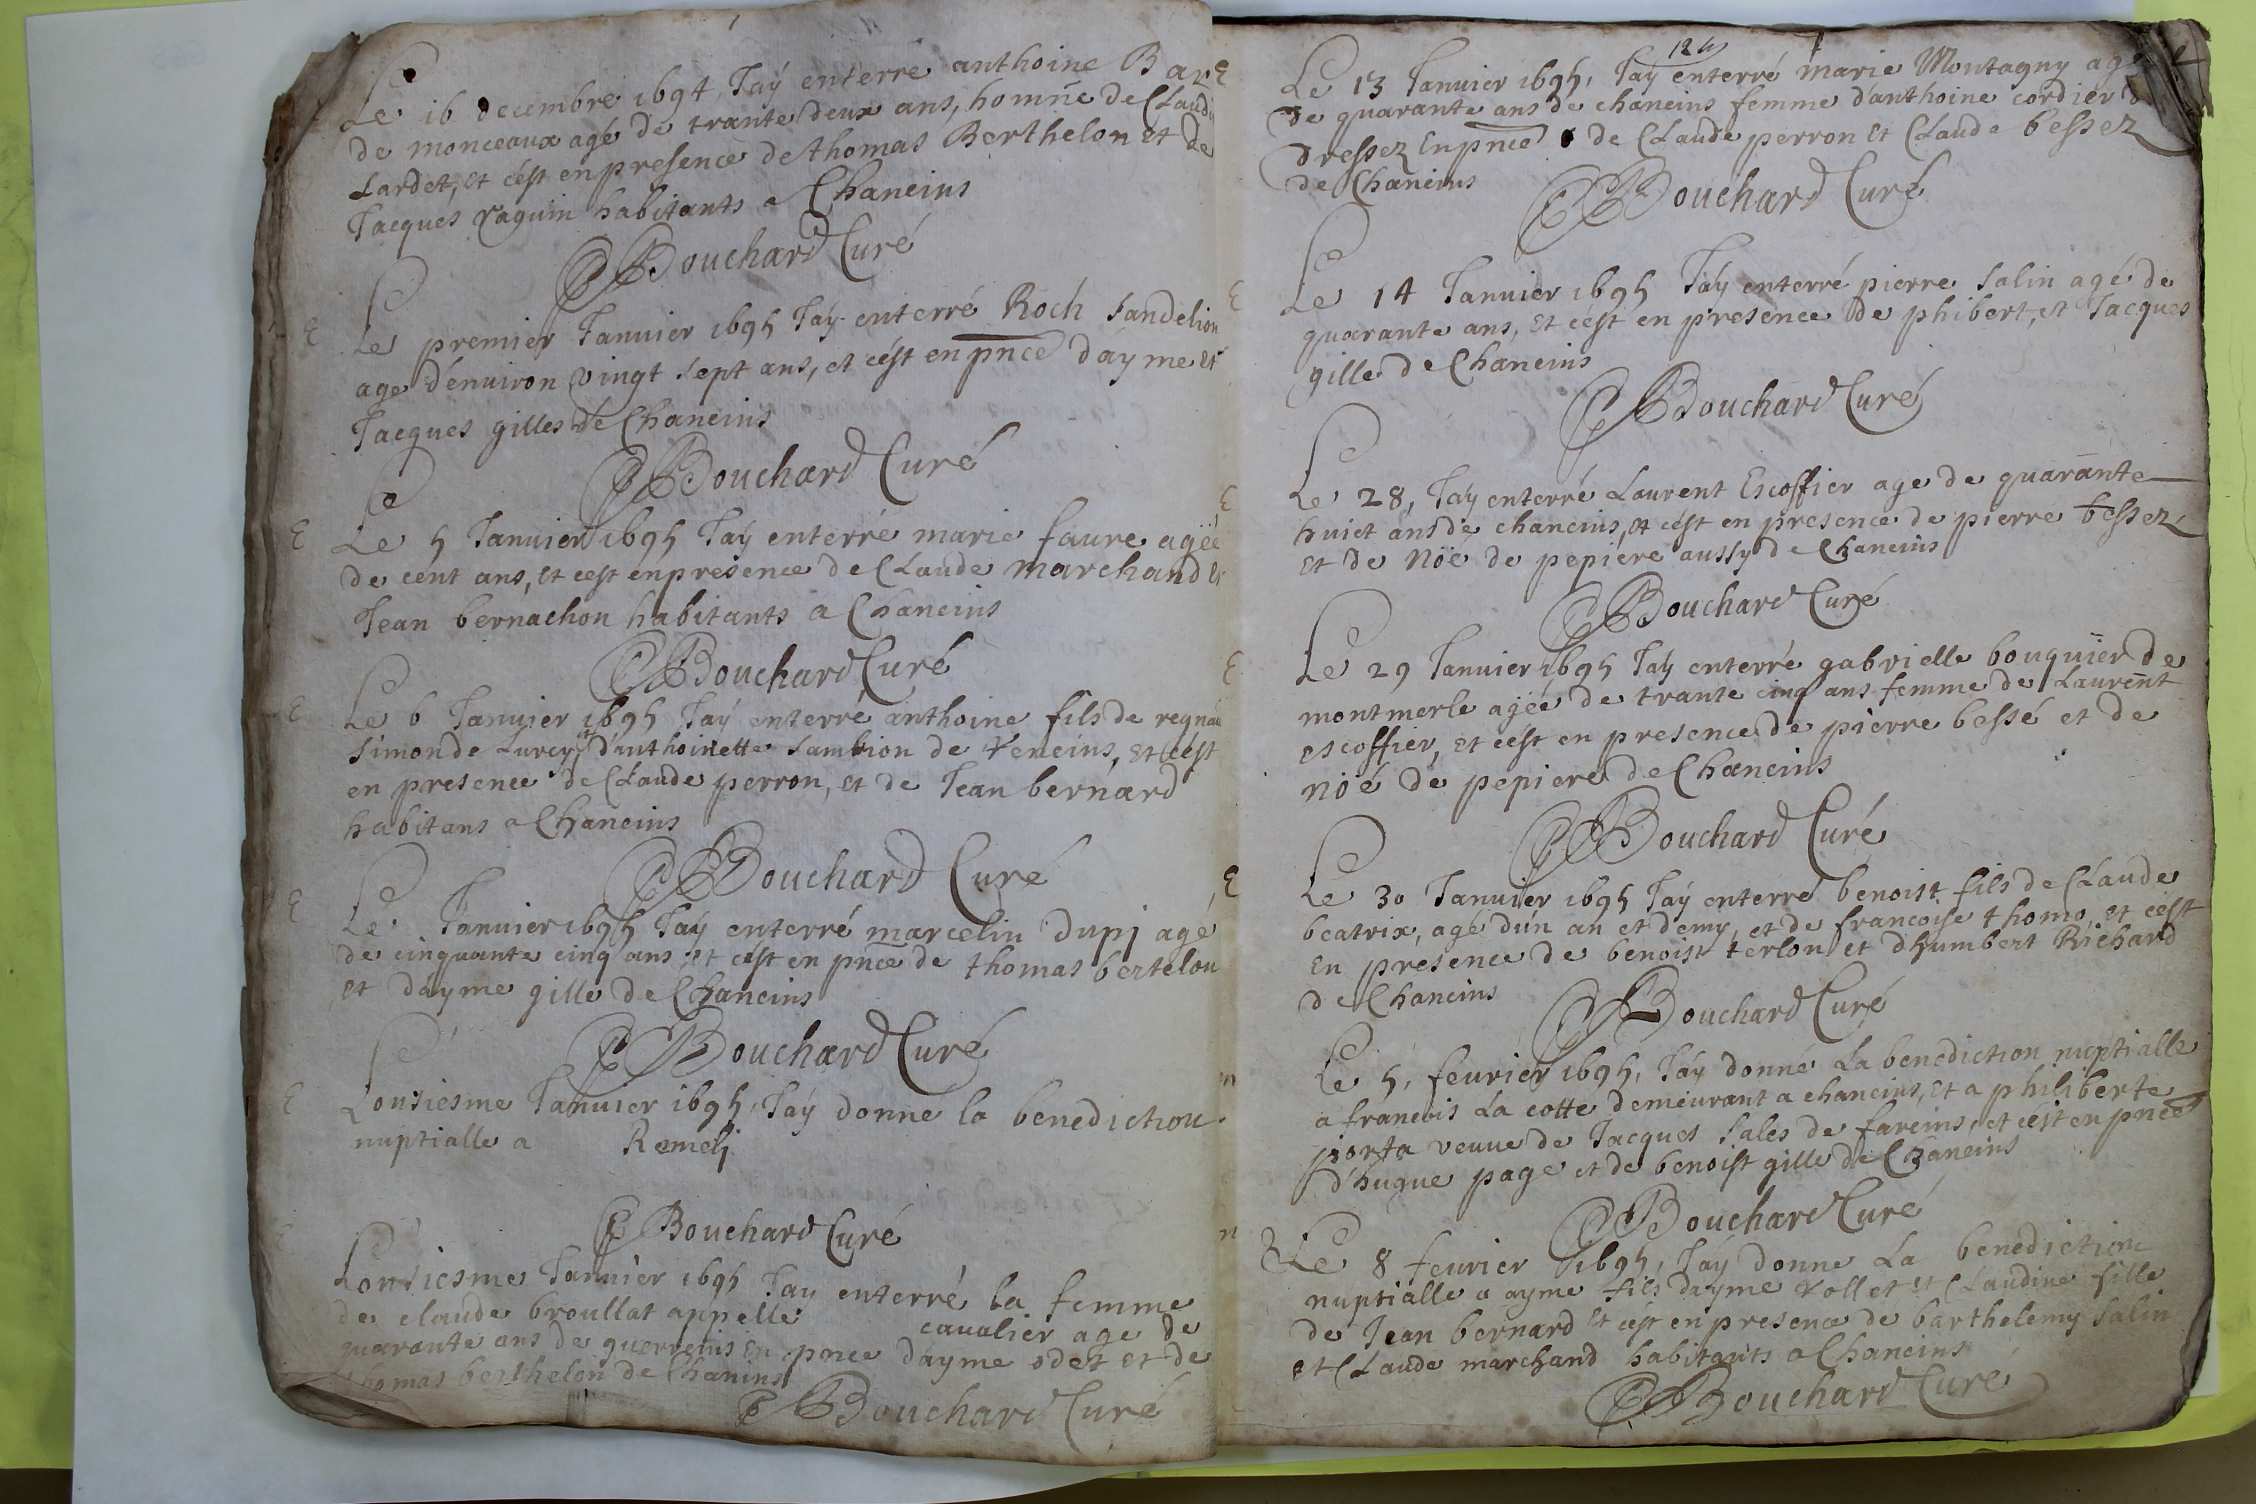 Le 16 decembre 1694 Jaÿ enterré anthoine Bar
de monceaux agé de trante deux ans, homme de Claudi
Lardet, et cést en presence de thomas Berthelon et de
Jacques raguin habitants a Chaneins
Bouchard Curé
E Le premier Januier 1695 Jaÿ enterré Roch Sandelion
age d'enuiron vingt sept ans, et cést en pnce dayme et
Jacques gilles de Chaneins
Bouchard Curé
E Le 5 Januier 1695 Jaÿ enterré marie faure agée
de cent ans, et cest en presence de Claude marchand et
Jean bernachon habitants a Chaneins
Bouchard Curé
E Le 6 Januier 1695 Jaÿ enterré anthoine fils de regnau
Simon de Lurcy, et d'anthoinette Sambion de veneins, et cést
en presence de Claude perron, et de Jean bernard
habitans a Chaneins
Bouchard Curé
E Le Januier 1695 Jaÿ enterré marcelin dupj agé
de cinquante cinq ans et cést en pnce de thomas bertelon
et dayme gille de Chaneins
Bouchard Curé
E Lonsiesme Januier 1695, Jaÿ donne la benediction
nuptialle a Remelj
Bouchard Curé
Lonsiesme Januier 1695 Jay enterré la femme
de claude broullat appelle cavalier age de
quarante ans de guerreins en pnce dayme odet et de
thomas berthelon de Chanins
Bouchard Curé
Le 13 Januier 1695, Jaÿ enterré marie Montagny agé
de quarante ans de chaneins femme d'anthoine cordier
dressez En pnce de Claude perron et Claude bessez
de Chaneins
Bouchard Curé
E Le 14 Januier 1695 Jaÿ enterré pierre Salin agé de
quarante ans, et cést en presence de phibert, et Jacques
gille de Chaneins
Bouchard Curé
E Le 28, Jaÿ enterré Laurent Escoffier age de quarante
huict ans de chaneins, et cést en presence de pierre bessez
et de Nöe de pepiere aussy de Chaneins
Bouchard Curé
E Le 29 Januier 1695 Jaÿ enterré gabrielle bouquier de
montmerle agée de trante cinq ans femme de Laurent
escoffier, et cést en presence de pierre bessé et de
nöé de pepiere de Chaneins
Bouchard Curé
E Le 30 Januier 1695 Jaÿ enterré benoist fils de Claude
beatrix, agé dún an et demy, et de francoise thomo, et cést
en presence de benoist terlon et dhumbert Richard
de Chaneins
Bouchard Curé
m Le 5, feurier 1695, Jaÿ donné La benediction nuptialle
a francois La cotte demeurant a chaneins, et a philiberte
porta veuue de Jacques Sales de fareins, et cést en pnce
d'hugue page et de benoist gille de Chaneins
Bouchard Curé
m Le 8 feurier 1695, Jaÿ donne La benediction
nuptialle a ayme fils dayme vollet et Claudine fille
de Jean bernard et cést en presence de barthelemy Salin
et Claude marchand habitants a Chaneins
Bouchard Curé